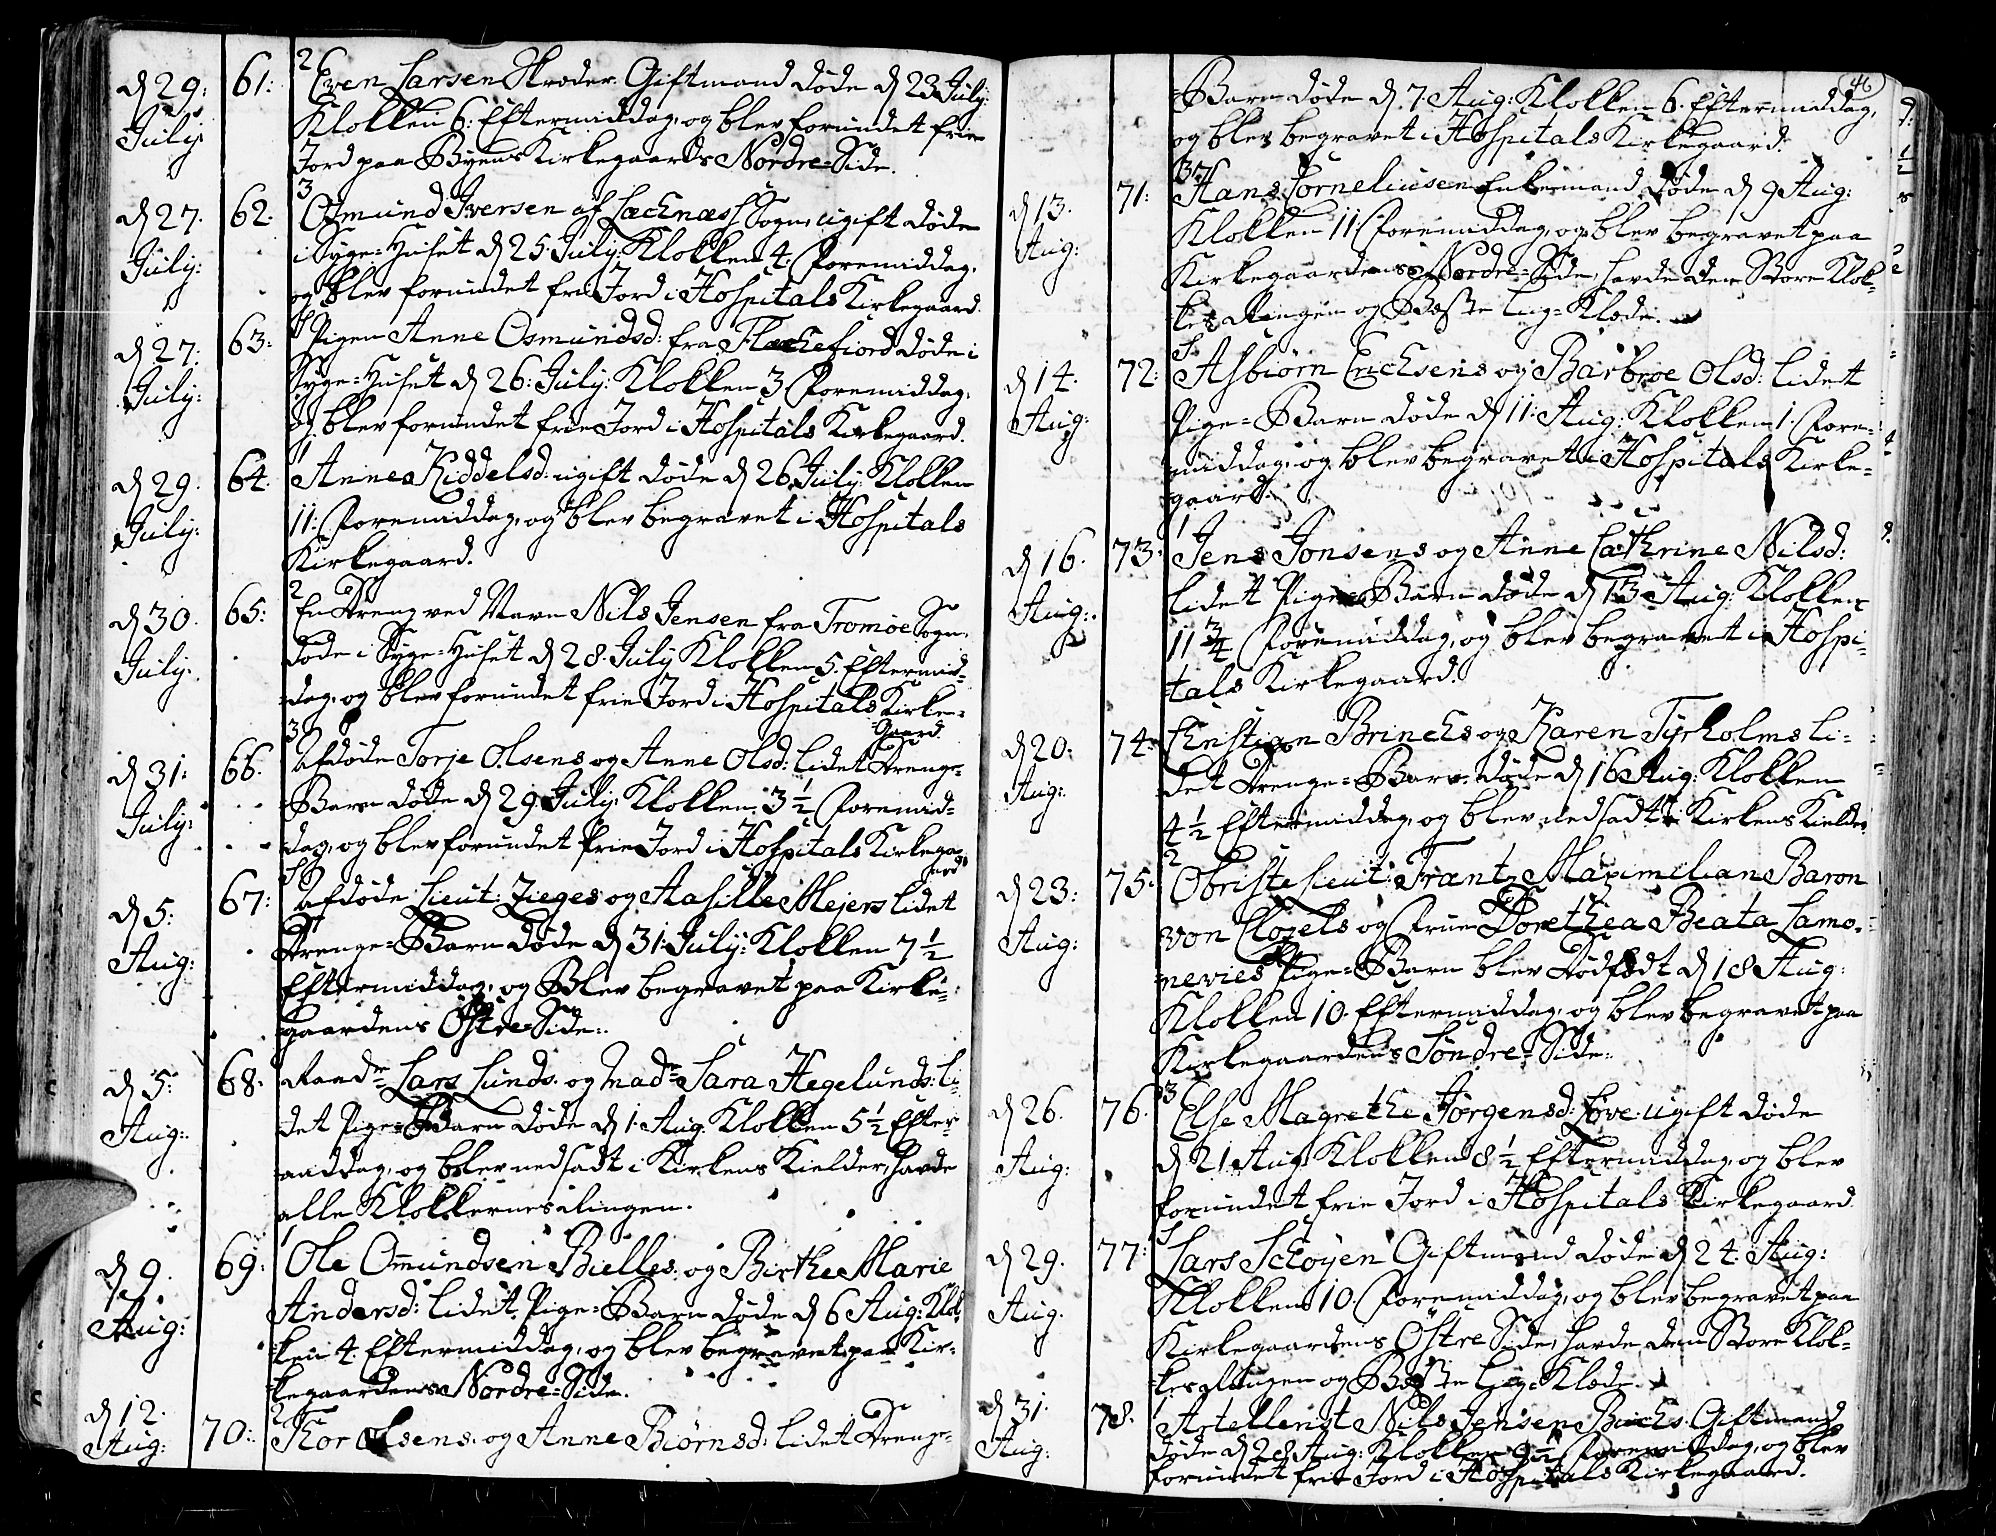 d 29: 61: 2 Even Larsen Skreder Giftmand døde d 23 July:
July: Klokken 6: Eftermiddag, og blev forundet frie
Jord paa Byens Kirkegaards Nordre-Side.
d 27. 62. 3 Osmund Iversen af Sogn, ugift døde
July: i Syge-Huset d 25 July: Klokken 4: Foremiddag,
og blev forundet frie Jord i Hospitals Kirkegaard.
d 27: 63: Pigen Anne Osmundsd: fra Fleckefiord døde i
July: Syge-Huset d 26: July: Klokken 3 Foremiddag,
og blev forundet frie Jord i Hospitals Kirkegaard.
d 29. 64. 1 Anne Kiddelsd: ugift døde d 26 July: Klokken
July: 11: Foremiddag, og blev begravet i Hospitals
Kirkegaard.
d 30. 65: 2 En Dreng ved Navn Nils Jensen fra Tromøe Sogn,
July: døde i Syge-Huset d 28. July Klokken 5. Eftermid-
dag, og blev forundet frie Jord i Hospitals Kirke-
Gaard.
d 31: 66. 3 Afdøde Torje Olsens og Anne Olsd: lidet Drenge-
July: Barn døde d 29 July: Klokken 3 1/2 Foremid-
dag, og blev forundet frie Jord i Hospitals Kirkega-
ard
d 5: 67: Afdøde Lieut: Zieges og Aasille Mejers lidet
Aug: Drenge-Barn døde d 31: July: Klokken 7 1/2
Eftermiddag, og Blev begravet paa Kirke-
gaardens Østre-Side:
d 5: 68. Raadr Lars Lunds. og Madr Sara Hegelunds: li-
Aug: det Pige-Barn døde d 1. Aug. Klokken 5 1/2 Efter-
middag, og blev nedsadt i Kirkens Kielder, havde
alle Klokkernes Ringen.
d 9. 69: 1 Ole Omundsen Bielles. og Birthe Marie
Aug: Andersd: lidet Pige-Barn døde d 6 Aug: Klok-
ken 4. Eftermiddag, og blev begravet paa Kir-
kegaardens Nordre-Side.
d 12. 70: 2 Thor Olsens. og Anne Biørnsd: lidet Drenge-
Aug:
46
Barn døde d 7. Aug: Klokken 6. Eftermiddag,
og blev begravet i Hospitals Kirkegaard.
d 13. 71: 3 Hans Corneliusen Enkemand døde d 9 Aug:
Aug: Klokken 11: Foremiddag, og blev begravet paa
Kirkegaardens Nordre-Side, havde den Store Klok-
kes Ringen og Beste Lig-Klæde.
d 14. 72: Asbiørn Erichsens og Barbroe Olsd: lidet
Aug: Pige-Barn døde d 11: Aug: Klokken 1. Fore-
middag, og blev begravet i Hospitals Kirke-
gaard.
d 16. 73: 1 Jens Jonsens og Anne Cathrine Nilsd:
Aug: lidet Pige-Barn døde d 13 Aug: Klokken
11 3/4 Foremiddag, og blev begravet i Hospi-
tals Kirkegaard.
d 20: 74: Christian Brinchs og Karen Tyrholms li-
Aug: det Drenge-Barn døde d 16 Aug: Klokken
4 1/2 Eftermiddag, og blev nedsadt i Kirkens Kielder
d 23: 75: 2 Obristelieut: Frantz Maximilian Baron
Aug: von og Frue Dorethea Beata Lamo-
nevies Pige-Barn blev Dødfødt d 18 Aug:
Klokken 10. Eftermiddag, og blev begravet paa
Kirkegaardens Søndre-Side.
d 26. 76. 3 Else Magrethe Jørgensd: Løve. ugift døde
Aug: d 21 Aug: Klokken 8 1/2 Eftermiddag, og blev
forundet frie Jord i Hospitals Kirkegaard
d 29. 77: Lars Schøyen Giftmand døde d 24 Aug:
Aug: Klokken 10. Foremiddag, og blev begravet paa
Kirkegaardens Østre Side, havde den Store Klok-
kes Ringen og Beste Lig-Klæde.
d 31. 78. 1 Artellerist Nils Jensen Buchs. Giftmand
Aug: døde d 28 Aug: Klokken 9 1/2 Foremiddag, og blev
forundet frie Jord i Hospitals Kirkegaard.